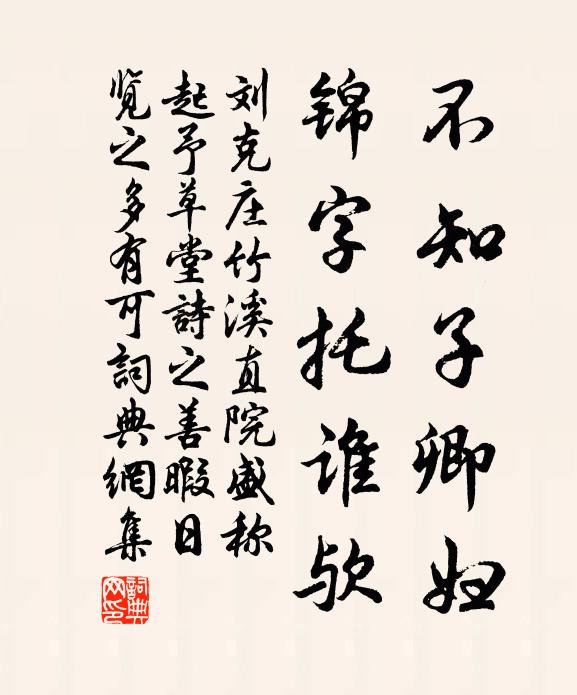 不知子卿妇
锦字托谁欤
刘克庄竹溪直院盛称
起予草堂詩之善暇日
览之多有可詞典網集